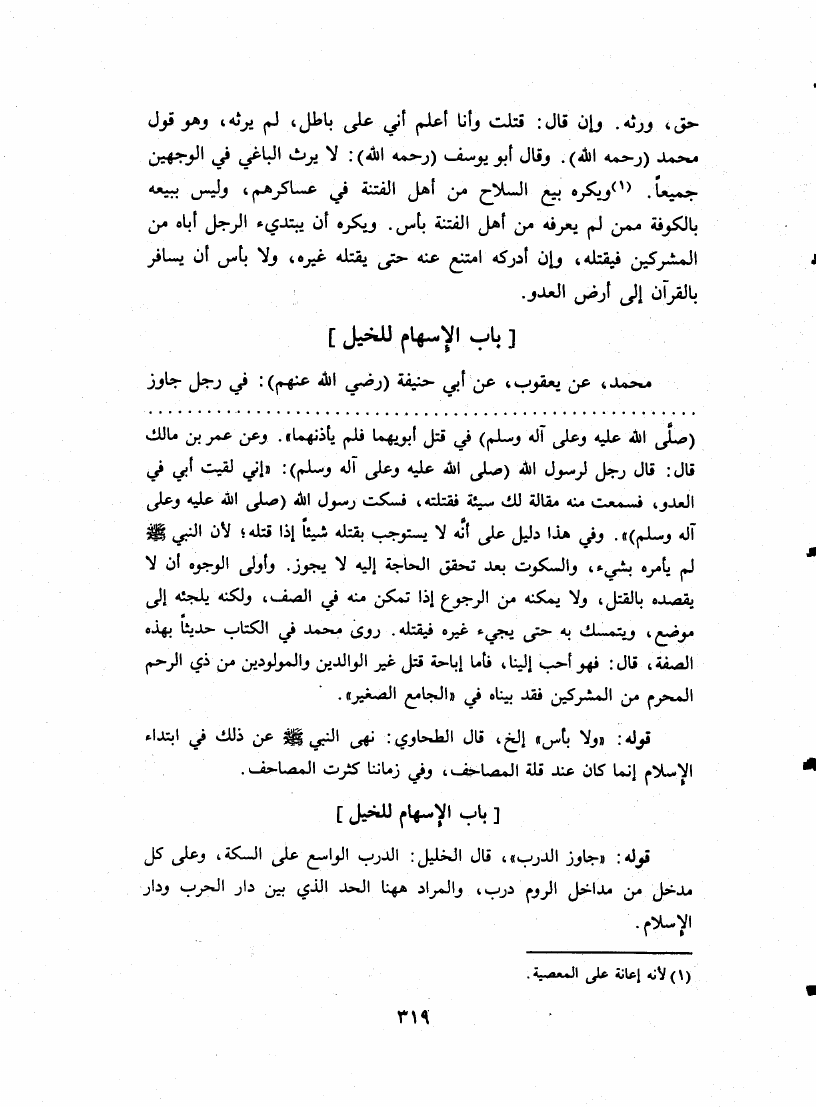 حق، ورثه. وإن قال: قتلت وأنا أعلم أني على باطل، لم يرثه، وهو قول
محمد (رحمه الله). وقال أبو يوسف (رحمه الله): لا يرث الباغي في الوجهين
جميعاً. (١)ويكره بيع السلاح من أهل الفتنة في عساكرهم، وليس ببيعه
بالكوفة ممن لم يعرفه من أهل الفتنة بأس. ويكره أن يبتديء الرجل أباه من
المشركين فيقتله، وإن أدركه امتنع عنه حتى يقتله غيره، ولا بأس أن يسافر
بالقرآن إلى أرض العدو.
[ باب الإسهام للخيل ]
محمد، عن يعقوب، عن أبي حنيفة (رضي الله عنهم): في رجل جاوز
(صلَّى الله عليه وعلى آله وسلم) في قتل أبويهما فلم يأذنهما». وعن عمر بن مالك
قال: قال رجل لرسول الله (صلى الله عليه وعلى آله وسلم): «إني لقيت أبي في
العدو، فسمعت منه مقالة لك سيئة فقتلته، فسكت رسول الله (صلى الله عليه وعلى
آله وسلم)». وفي هذا دليل على أنَّه لا يستوجب بقتله شيئاً إذا قتله؛ لأن النبي ﷺ
لم يأمره بشيء، والسكوت بعد تحقق الحاجة إليه لا يجوز. وأولى الوجوه أن لا
يقصده بالقتل، ولا يمكنه من الرجوع إذا تمكن منه في الصف، ولكنه يلجئه إلى
موضع، ويتمسك به حتى يجيء غيره فيقتله. روى محمد في الكتاب حديثاً بهذه
الصفة، قال: فهو أحب إلينا، فأما إباحة قتل غير الوالدين والمولودين من ذي الرحم
المحرم من المشركين فقد بيناه في «الجامع الصغير».
قوله: «ولا بأس» إلخ، قال الطحاوي: نهى النبي ﷺ عن ذلك في ابتداء
الإسلام إنما كان عند قلة المصاحف، وفي زماننا كثرت المصاحف.
[ باب الإسهام للخيل ]
قوله: «جاوز الدرب»، قال الخليل: الدرب الواسع على السكة، وعلى كل
مدخل من مداخل الروم درب، والمراد ههنا الحد الذي بين دار الحرب ودار
الإسلام.
(١) لأنه إعانة على المعصية.
٣١٩